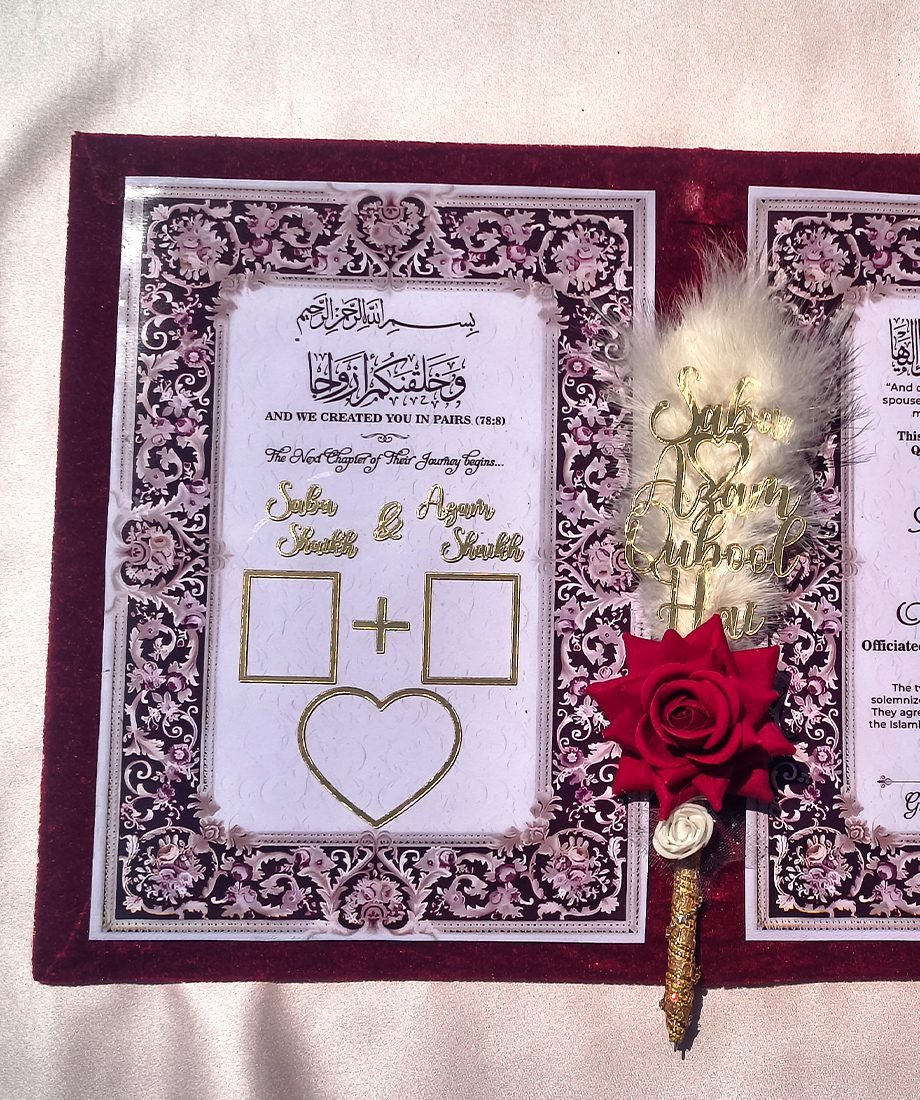 بسم الله الرحمن الرحيم
وخلقنكم أزواجا
AND WE CREATED YOU IN PAIRS (78:8)
The Next Chapter of Their Journey begins...
Saba Shaikh & Azam Shaikh
+
Saba
Azam
Qubool
Hai
"And
spouse
This
Officiated
The
solemnize
They agre
the Islam